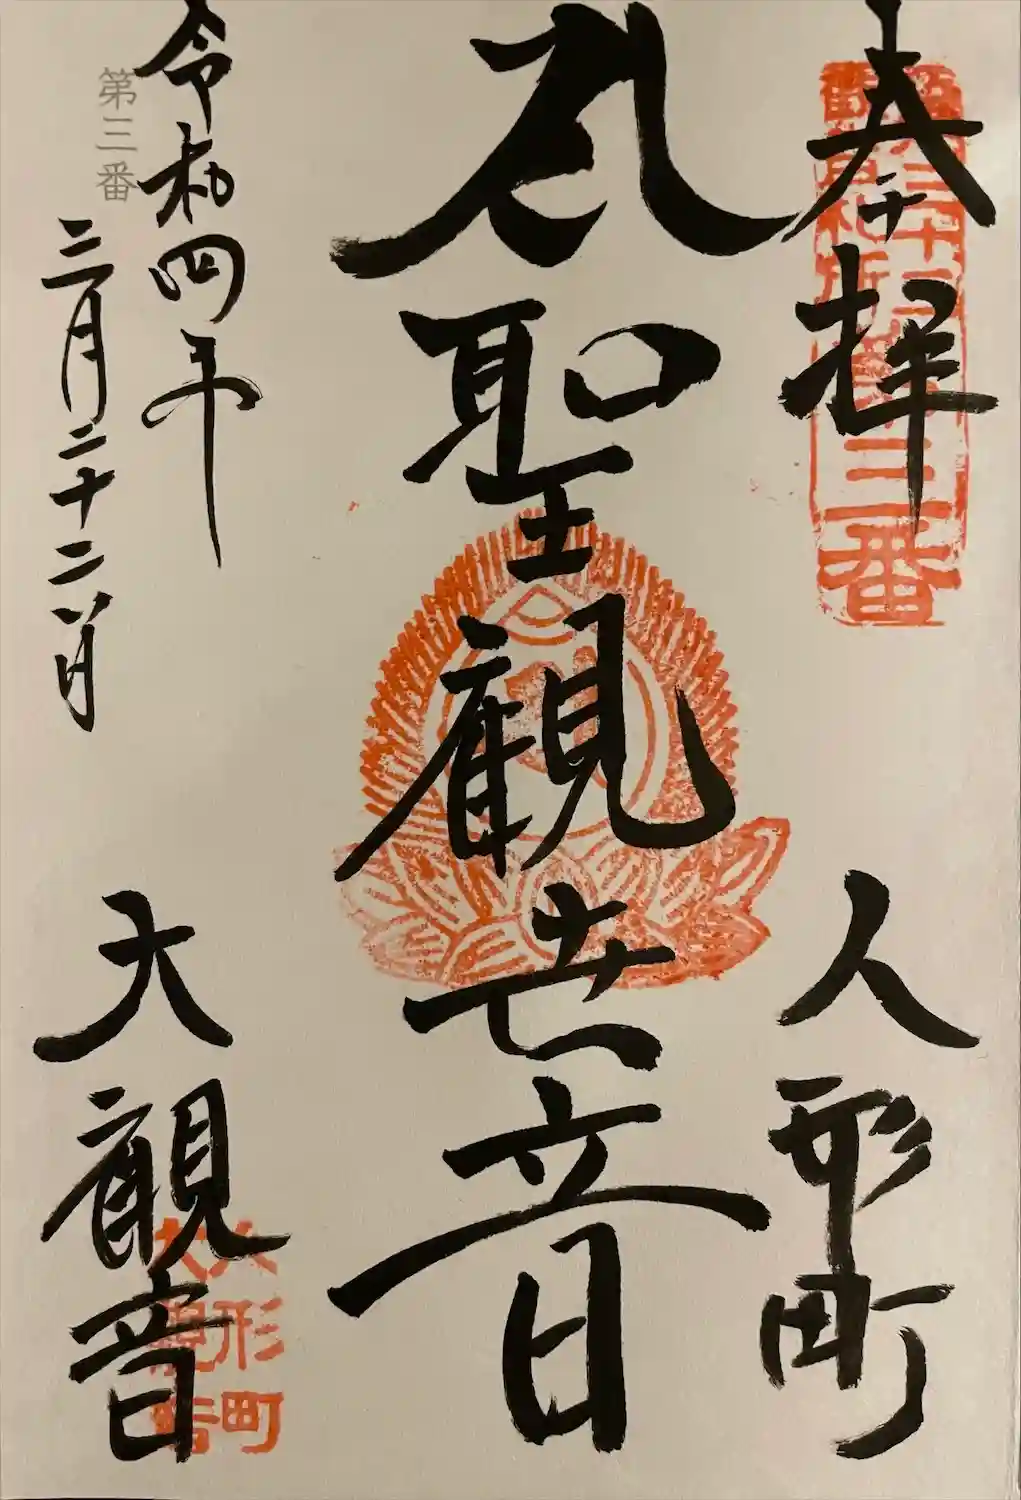 奉拝
人形町
聖観世音
第三番
令和四年
三月二十二日
大観音
三番
人形町
大観音